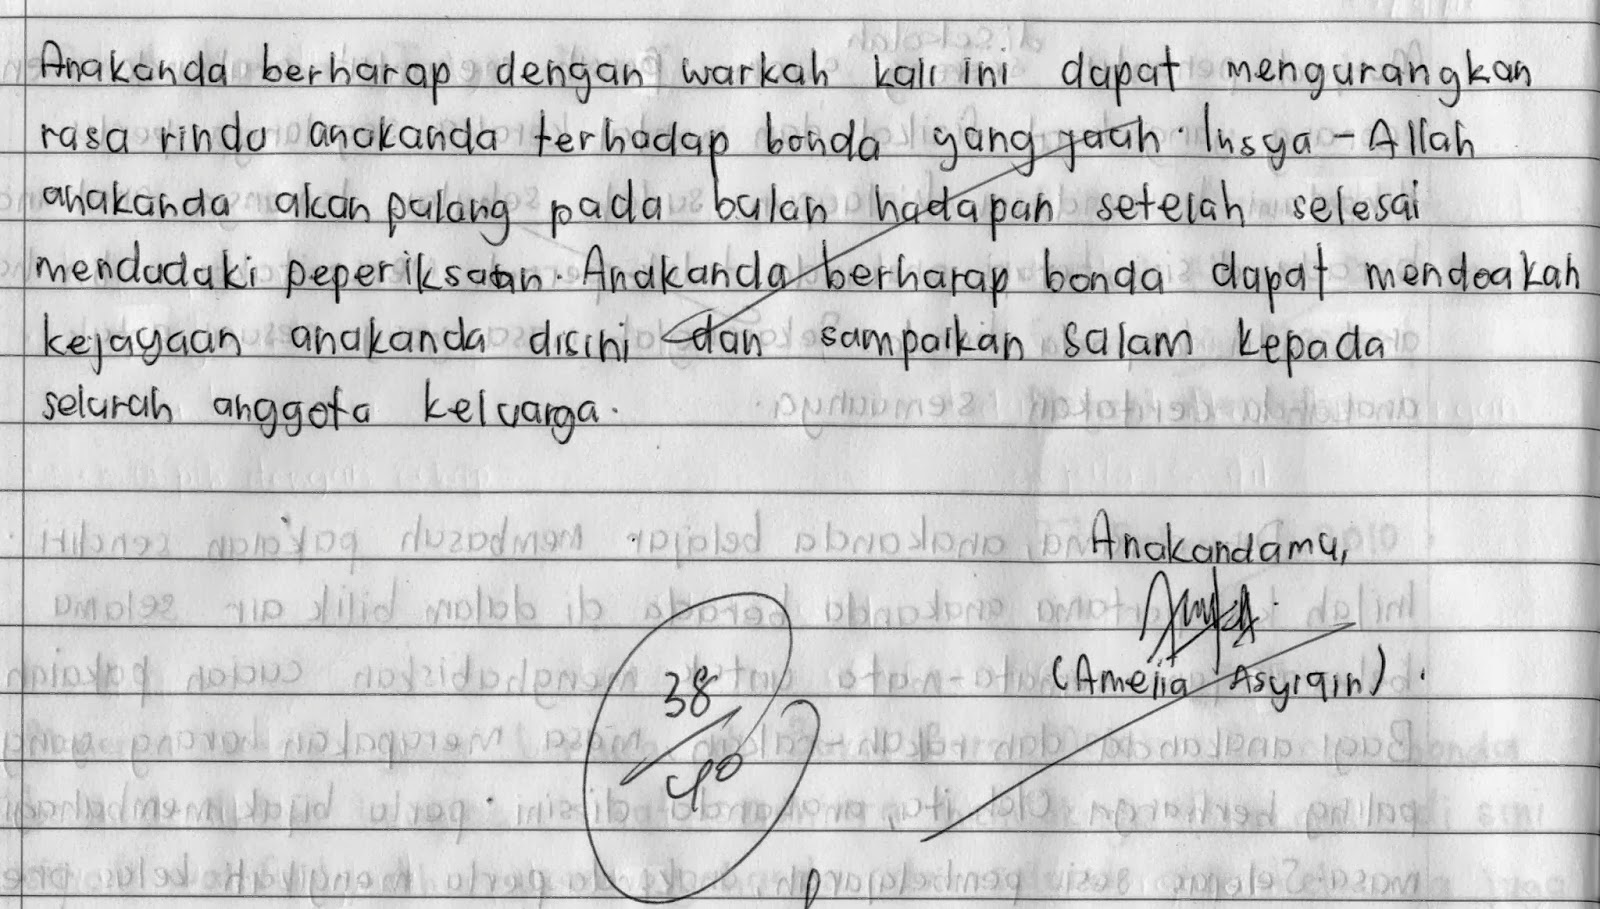 Anakanda berharap dengan warkah kali ini dapat mengurangkan
rasa rindu anakanda terhadap bonda yang jauh. Insya-Allah
anakanda akan pulang pada bulan hadapan setelah selesai
menduduki peperiksaan. Anakanda berharap bonda dapat mendoakan
kejayaan anakanda disini dan sampaikan salam kepada
seluruh anggota keluarga.
Anakandamu,
(Amelia Asyiqin).
38
40